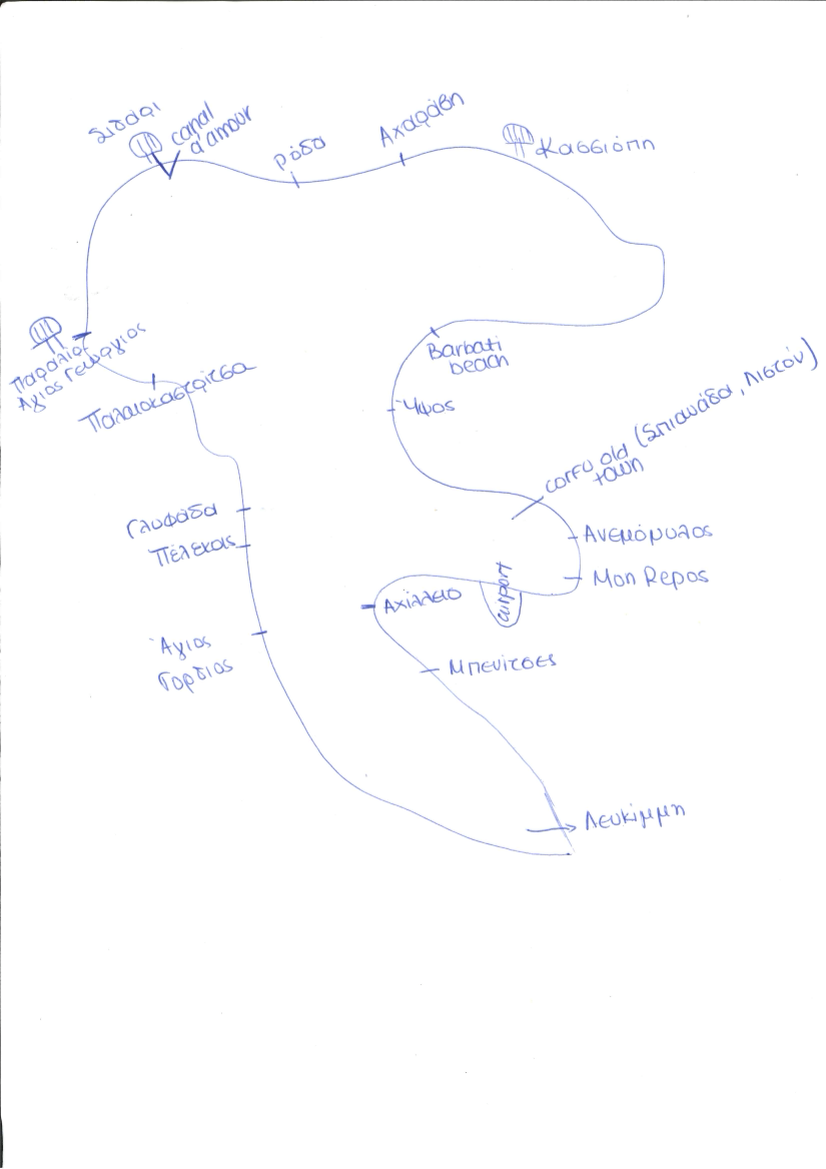 Σιδάρι
canal
d'amour
Ρόδα
Αχαράβη
Κασσιόπη
Παραλία
Άγιος Γεώργιος
Παλαιοκαστρίτσα
Barbati
beach
Ύψος
corfu old
town
(Σπιανάδα, Λιστόν)
Γλυφάδα
Πέλεκας
Ανεμόμυλος
Mon Repos
airport
Αχίλλειο
Άγιος
Γορδιος
Μπενίτσες
Λευκίμμη